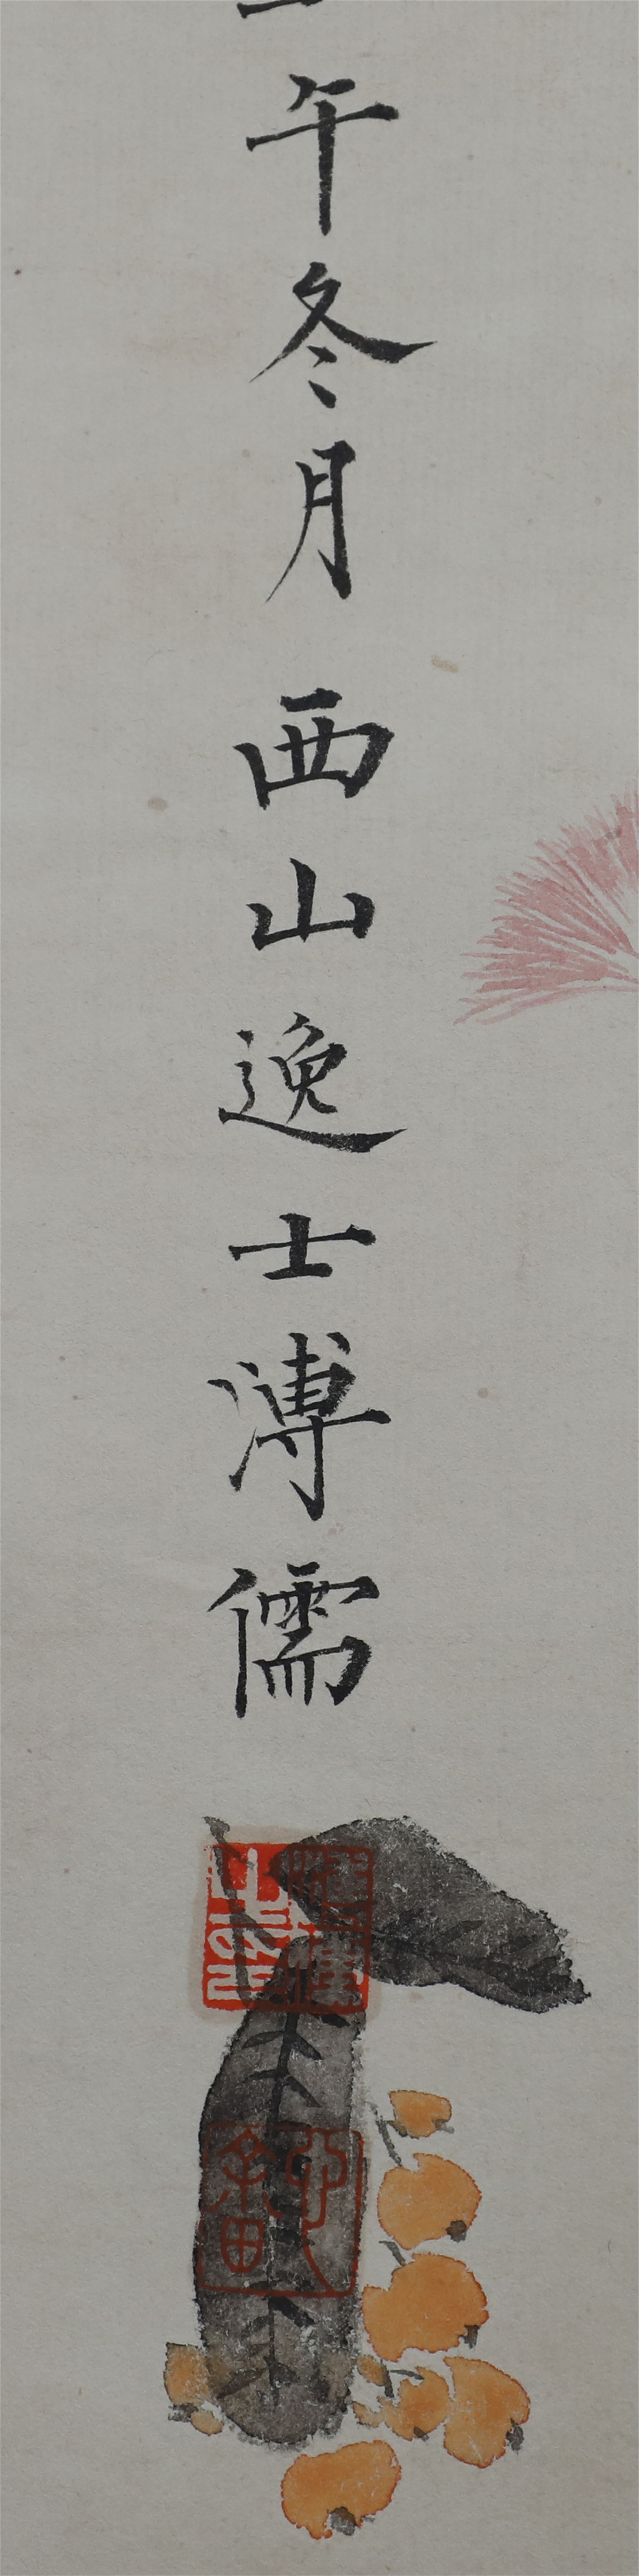 午冬月西山逸士溥儒